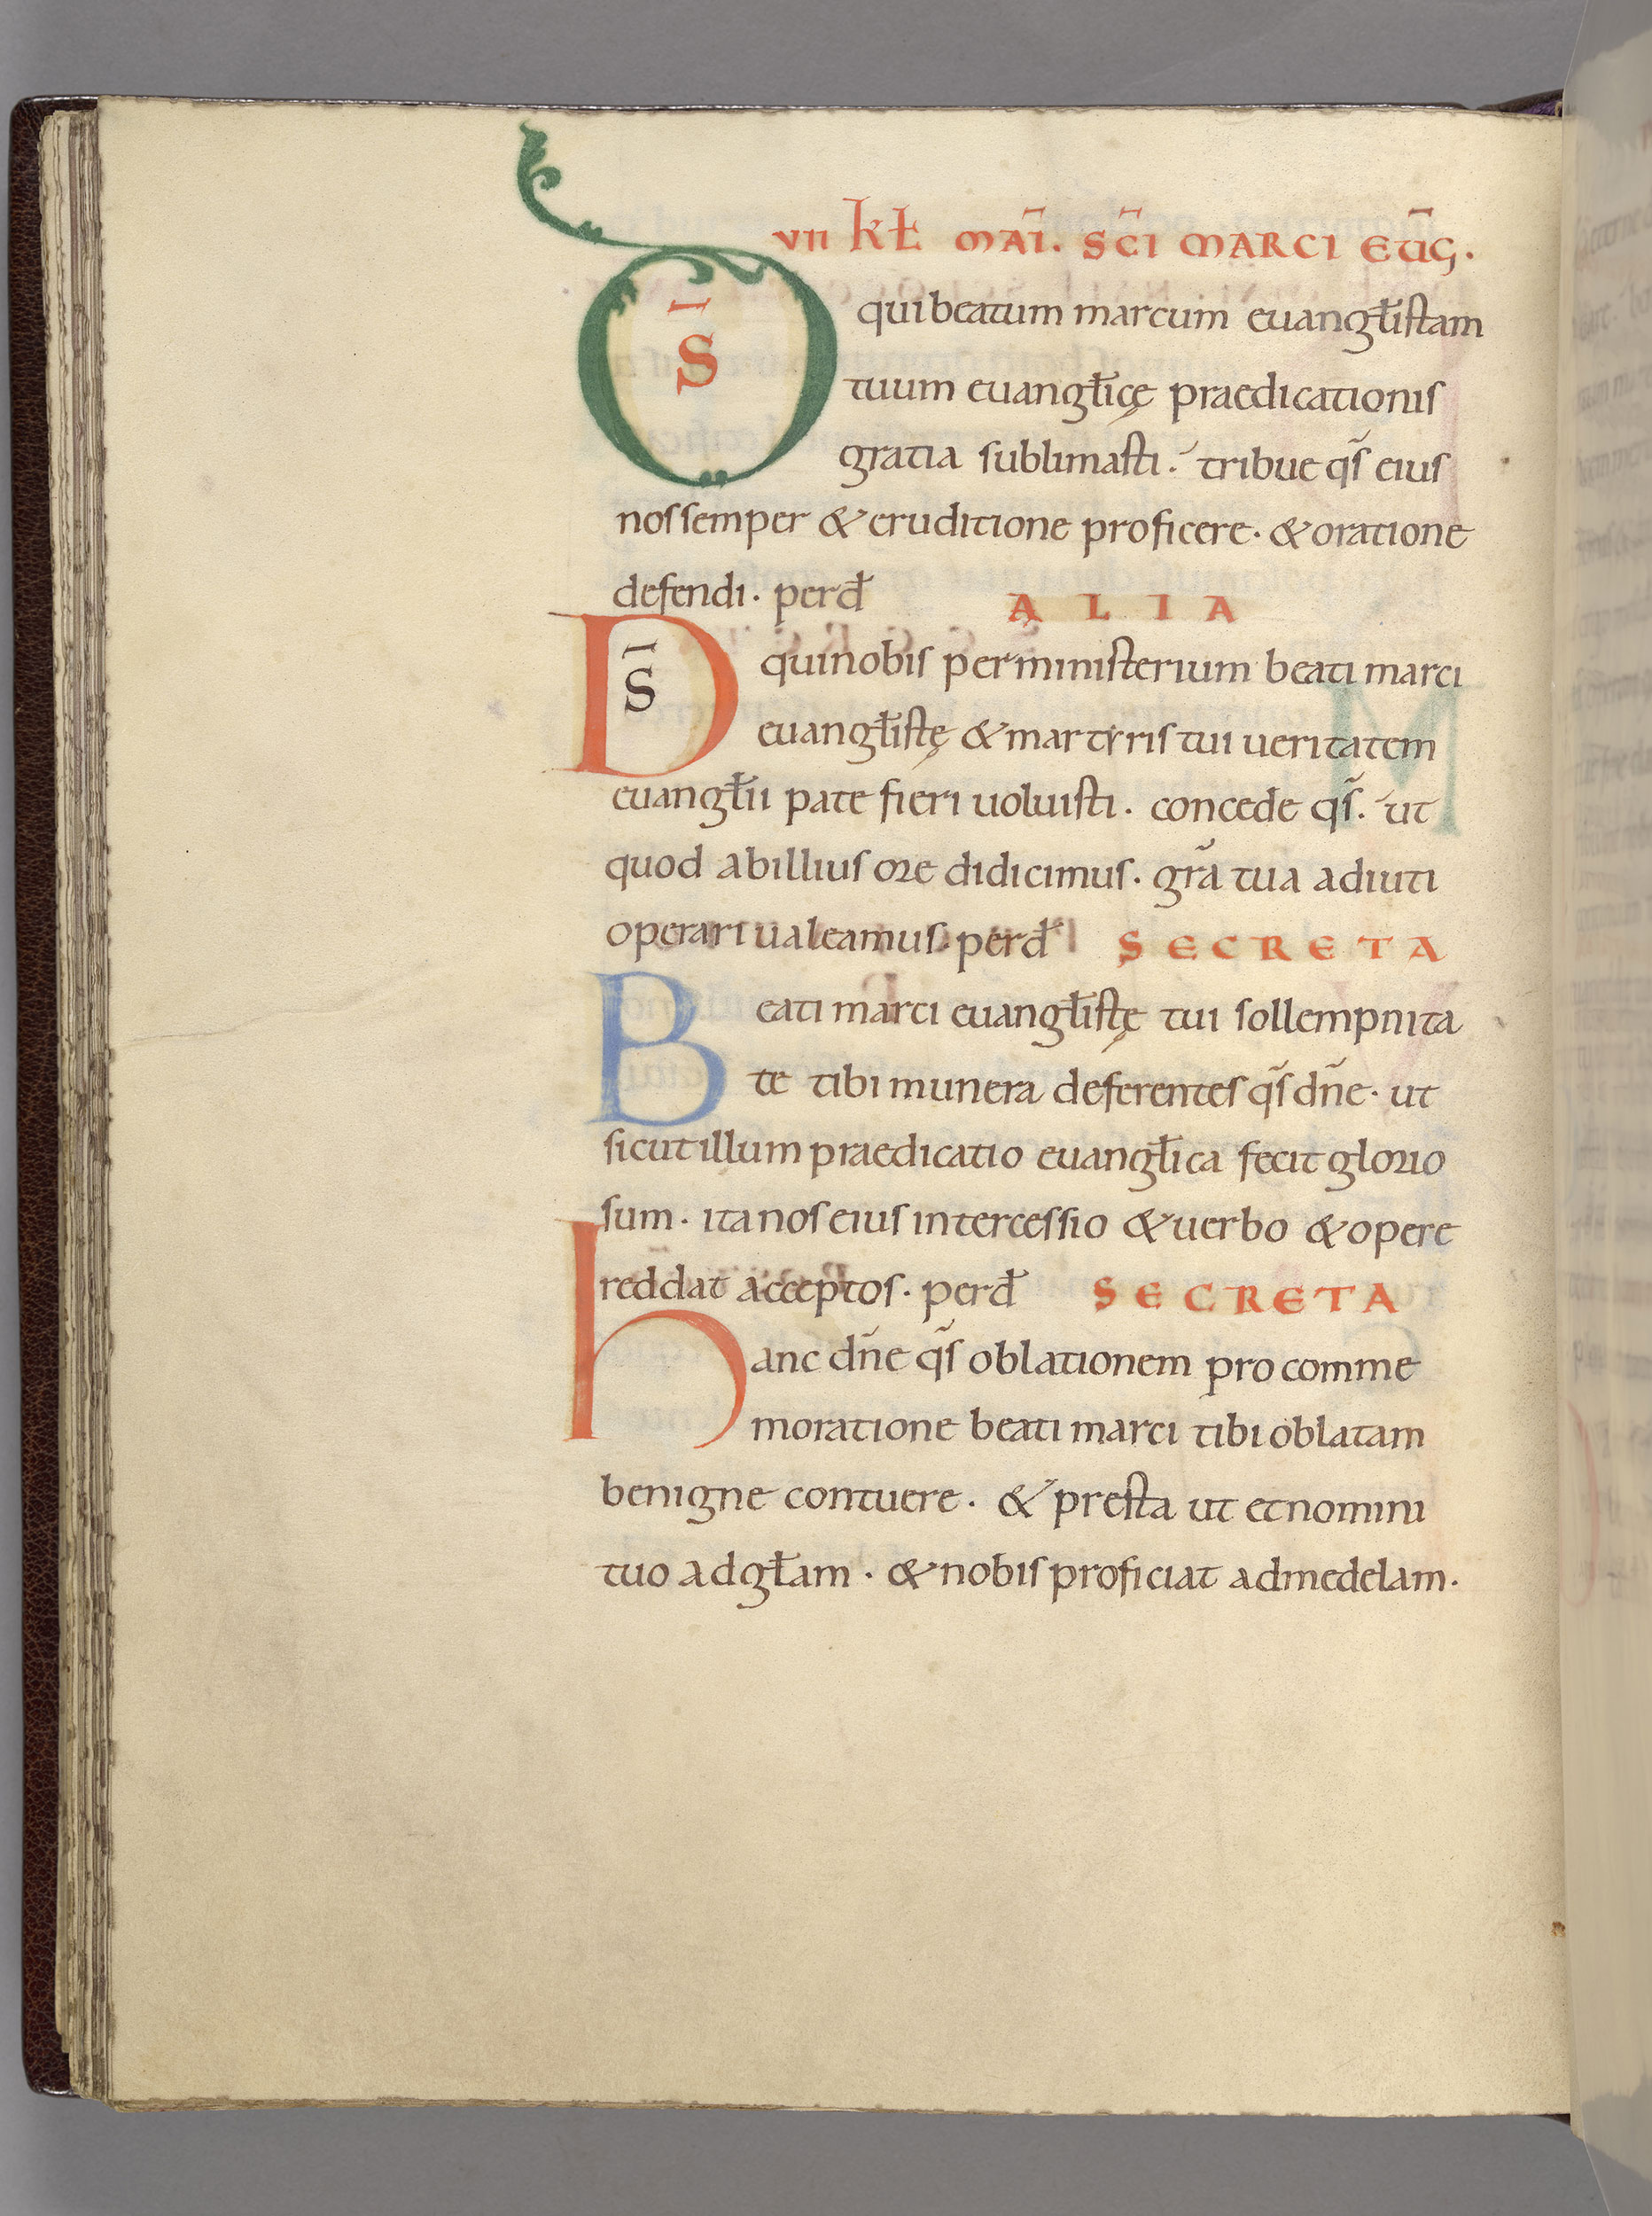 VII KƗ MAĪ. SC̄I MARCI EUḠ.
DS̄ qui beatum marcum euangƚistam
tuum euangƚicę praedicationis
gratia sublimasti. tribue qs̄ eius
nos semper & eruditione proficere. & oratione
defendi. per đ ALIA
DS̄ qui nobis per ministerium beati marci
euangƚistę & martyris tui ueritatem
euangƚii patefieri uoluisti. concede qs̄. ut
quod ab illius ore didicimus. gr̄a tua adiuti
operari ualeamus. per đ SECRETA
Beati marci euangƚistę tui sollempnita
te tibi munera deferentes qs̄ dn̄e. ut
sicut illum praedicatio euangƚica fecit glorio
sum. ita nos eius intercessio & uerbo & opere
reddat acceptos. per đ SECRETA
hanc dn̄e qs̄ oblationem pro comme
moratione beati marci tibi oblatam
benigne contuere. & presta ut et nomini
tuo ad gƚam. & nobis proficiat ad medelam.